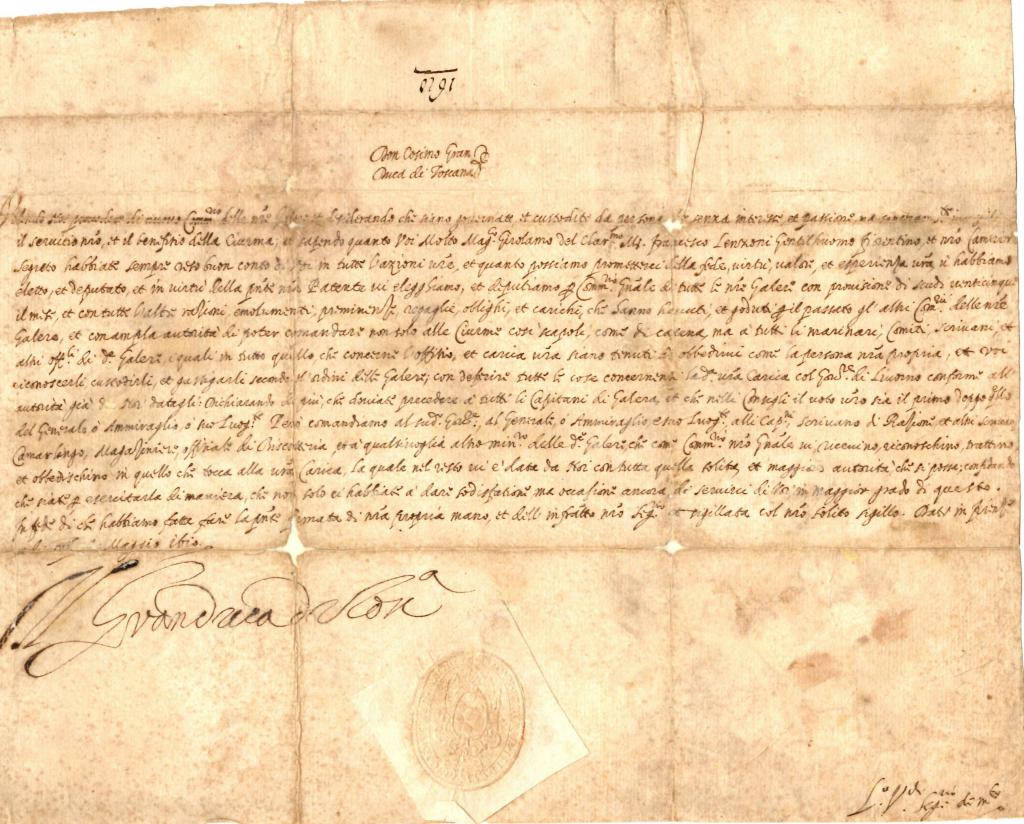 1610
Don Cosimo Gran
Duca di Toscana
di nuovo Comm.rio delle nre Galere, et desiderando che siano governate et custodite da persona che senza interesse, et passione, ma
il servitio nro, et il benefitio della Ciurma; et sapendo quanto Voi Molto Mag.co Girolamo del Clar.mo Ms. Francesco Lenzoni Gentilhuomo fiorentino, et nro Cameriere
Segreto habbiate sempre reso buon conto di Voi in tutte l'azzioni vre, et quanto possiamo prometterci della fede, virtù, valore, et esperienza vra vi habbiamo
eletto, et deputato, et in virtù della pnte nra Patente vi elegghiamo, et deputiamo p Comm.rio Gnale di tutte le nre Galere con provisione di scudi venticinque
il mese, et con tutte l'altre ragioni, emolumenti, preminenze, regaglie, oblighi, et carichi, che hanno havuti, et goduti p il passato gl'altri Com.rii delle nre
Galere, et con ampla autorità di poter comandare non solo alle Ciurme così scapole, come di catena, ma à tutti li marinari, Comiti, scrivani, et
altri off.li di d.e Galere, i quali in tutto quello che concerne l'offitio, et carica vra siano tenuti à obbedirvi come la persona nra propria, et voi
riconoscerli custodirli, et gastigarli secondo gl'ordini delle Galere; con deferire tutte le cose concernenti la d.a vra Carica col Gov.re di Livorno conforme all'
autorità già da Noi datagli. Dichiarando di più, che doviate precedere à tutti li Capitani di Galera, et che nelli Consegli il voto vro sia il primo doppo quello
del Generale ò Ammiraglio, ò suo Luog.te Però comandiamo al sud.o Gov.re, al Generale, ò Ammiraglio, e suo Luog.te, alli Cap.ni, scrivano di Ragione, et altri scrivani
Camarlengo, Magazziniere, offitiale di Biscotteria, et à qualsivoglia altro min.ro delle d.e Galere, che come Comm.rio nro Gnale vi ricevino, riconoschino, trattino,
et obbedischino in quello che tocca alla vra Carica, la quale nel resto vi è data da Noi con tutta quella solita, et maggior autorità che si possa; confidando
che siate p esercitarla di maniera, che non solo ci habbiate à dare sodisfatione ma occasione ancora, di servirci di Voi in maggior grado di questo.
In fede di che habbiamo fatta fare la pnte firmata di nra propria mano, et dell'infratto nro Seg.rio et sigillata col nro solito sigillo. Dat. in firenze
Maggio 1610
Il Gran Duca di Tosc.a